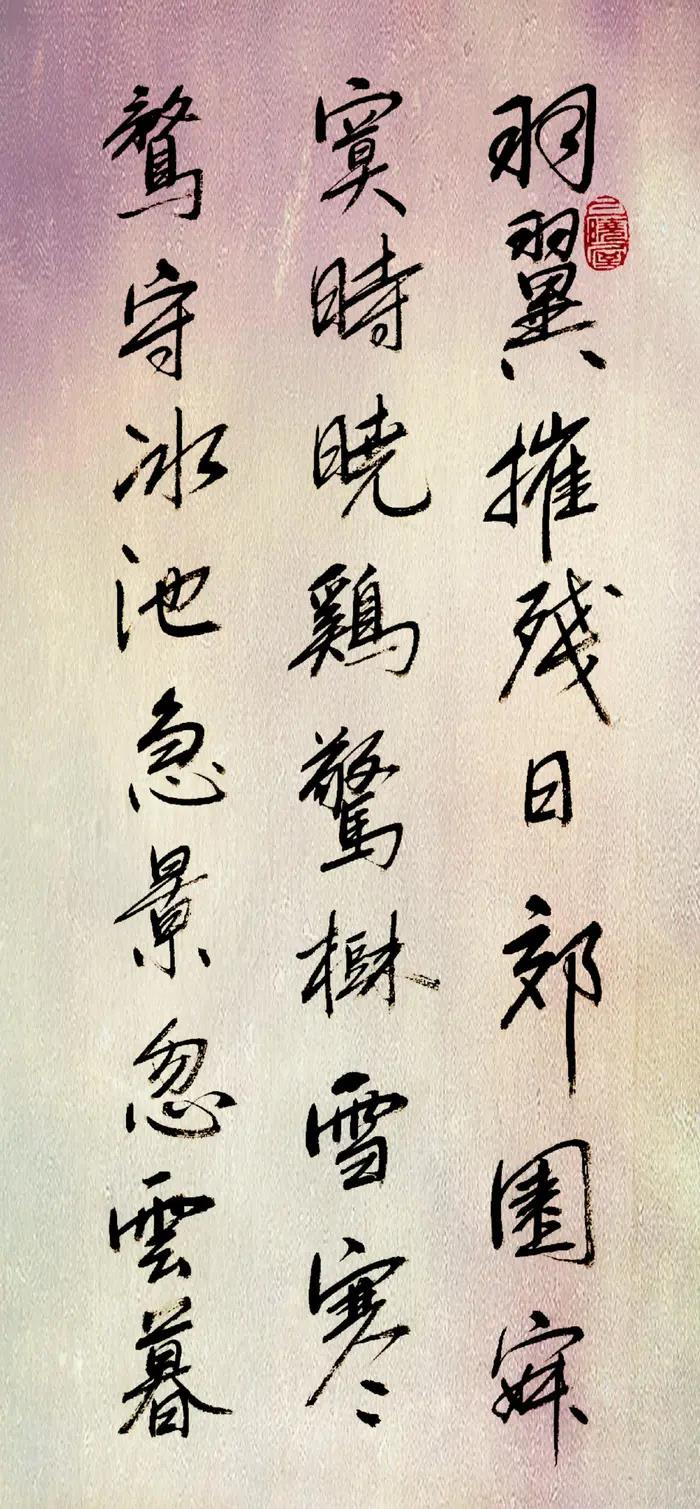 羽翼摧残日郊園寂
寞時暁鷄驚樹雪寒
鶩守冰池急景忽雲暮